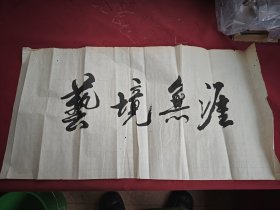 藝境無涯